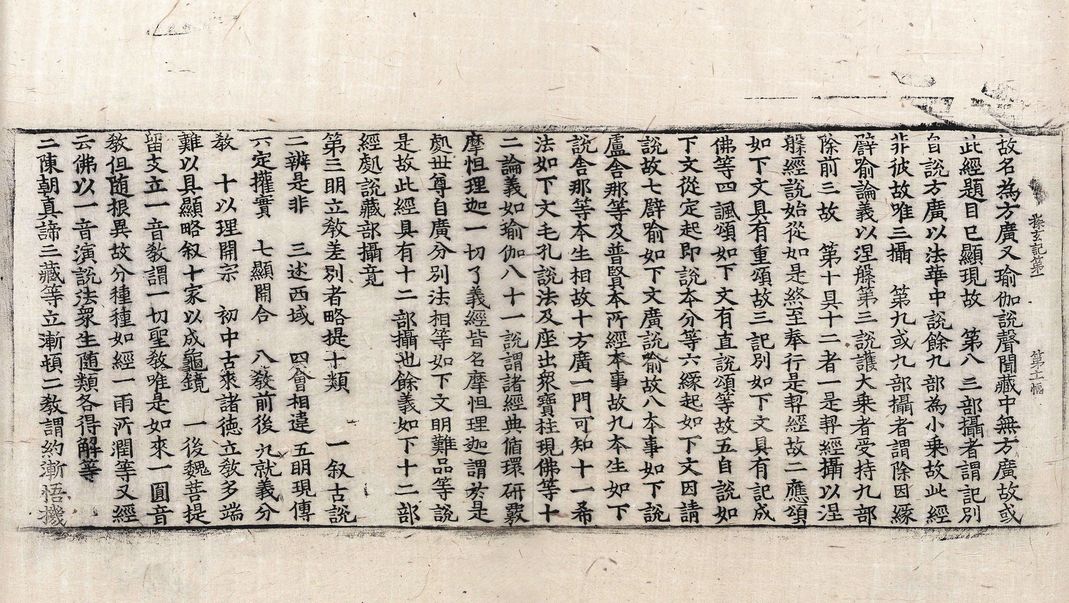 探玄記第一 第十幅
故名為方廣又瑜伽說聲聞藏中無方廣故或
此經題目已顯現故 第八 三部攝者謂記別
自說方廣以法華中說餘九部為小乘故此經
非彼故唯三攝 第九或九部攝者謂除因緣
譬喻論義以涅槃第三說護大乘者受持九部
除前三故 第十具十二者一是契經攝以涅
槃經說始從如是終至奉行是契經故二應頌
如下文具有重頌故三記別如下文具有記成
佛等四諷頌如下文有直說頌等故五自說如
下文從定起即說本分等六緣起如下文因請
說故七譬喻如下文廣說喻故八本事如下說
盧舍那等及普賢本所經本事故九本生如下
說舍那等本生相故十方廣一門可知十一希
法如下文毛孔說法及座出眾寶柱現佛等十
二論義如瑜伽八十一說謂諸經典循環研覈
摩怛理迦一切了義經皆名摩怛理迦謂於是
處世尊自廣分別法相等如下文明難品等說
是故此經具有十二部攝也餘義如下十二部
經處說藏部攝竟
第三明立教差別者略提十類 一叙古說
二辨是非 三述西域 四會相違 五明現傳
六定權實 七顯開合 八教前後 九就義分
教 十以理開宗 初中古來諸德立教多端
難以具顯略叙十家以成龜鏡 一後魏菩提
留支立一音教謂一切聖教唯是如來一圓音
教但随根異故分種種如經一雨所潤等又經
云佛以一音演說法眾生随類各得解等
二陳朝真諦三藏等立漸頓二教謂約漸悟機